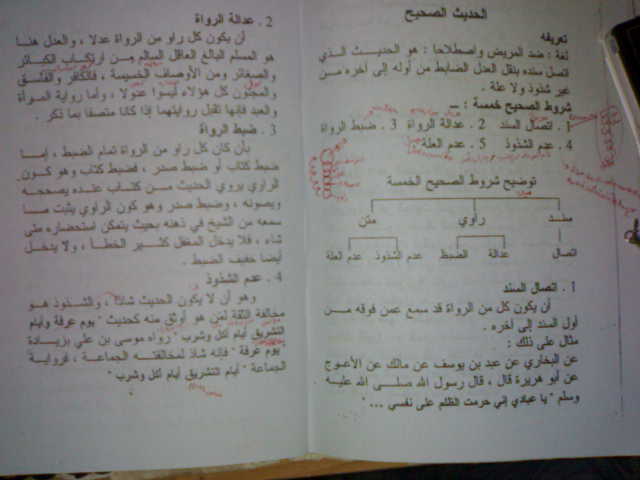 الحديث الصحيح
تعريفه
لغة : ضد المريض واصطلاحا : هو الحديث الذي
اتصل سنده بنقل العدل الضابط من أوله إلى آخره من
غير شذوذ ولا علة .
شروط الصحيح خمسة : ــ
1 . اتصال السند 2 . عدالة الرواة 3 . ضبط الرواة
4 . عدم الشذوذ 5 . عدم العلة .
توضيح شروط الصحيح الخمسة
سند راوي متن
اتصال عدالة الضبط عدم الشذوذ عدم العلة
1 . اتصال السند
أن يكون كل من الرواة قد سمع عمن فوقه من
أول السند إلى آخره .
مثال على ذلك :
عن البخاري عن عبد بن يوسف عن مالك عن الأعوج
عن أبو هريرة قال ، قال رسول الله صلى الله عليه
وسلم " يا عبادي إني حرمت الظلم على نفسي ... "
2 . عدالة الرواة
أن يكون كل راو من الرواة عدلا ، والعدل هنا
هو المسلم البالغ العاقل السالم من ارتكاب الكبائر
والصغائر ومن الأوصاف الخسيسة ، فالكافر والفسق
والمجنون كل هؤلاء ليسوا عدولا ، وأما رواية المرأة
والعبد فإنها تقبل روايتهما إذا كانا متصفا بما ذكر .
3 . ضبط الرواة
بأن كان كل راو من الرواة تمام الضبط ، إما
ضبط كتاب أو ضبط صدر ، فضبط كتاب وهو كون
الراوي يروي الحديث من كتاب عنده يصححه
ويصونه ، وضبط صدر وهو كون الراوي يثبت ما
سمعه من الشيخ في ذهنه بحيث يتمكن استحضاره متى
شاء ، فلا يدخل المغفل كثير الخطأ ، ولا يدخل
أيضا خفيف الضبط .
4 . عدم الشذوذ
وهو أن لا يكون الحديث شاذا ، والشذوذ هو
مخالفة الثقة لمن هو أوثق منه كحديث " يوم عرفة وأيام
التشريق أيام أكل وشرب " رواه موسى بن علي بزيادة
يوم عرفة " فإنه شاذ لمخالفته الجماعة ، فرواية
الجماعة " أيام التشريق أيام أكل وشرب "